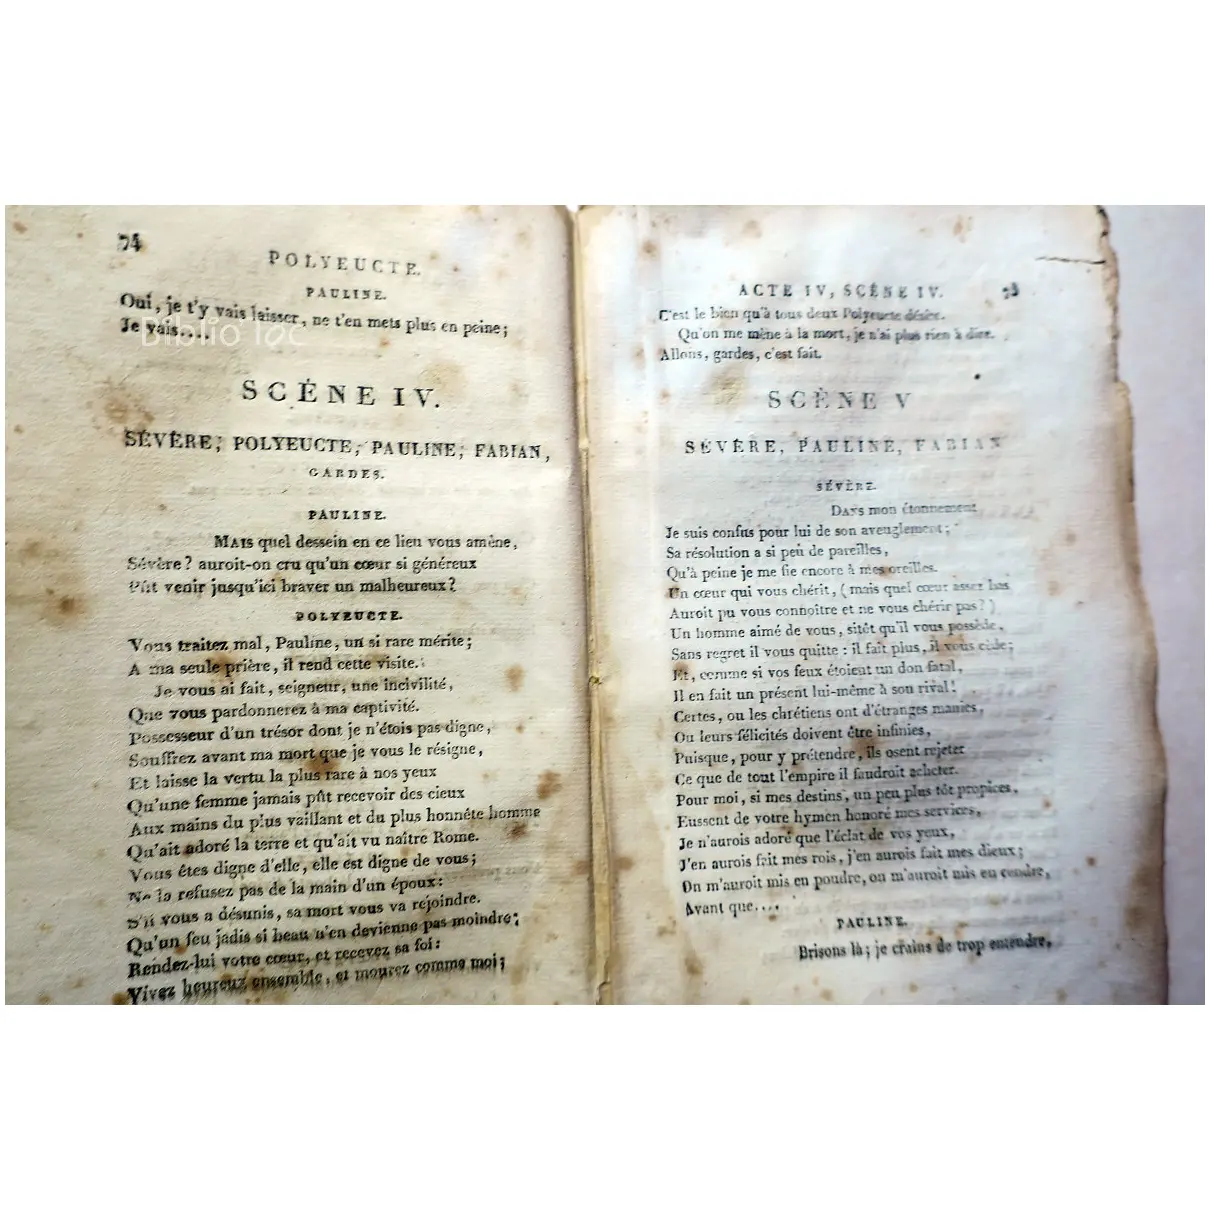 74
POLYEUCTE.
PAULINE.
Oui, je t'y vais laisser, ne t'en mets plus en peine;
Je vais....
Biblio
SCÈNE IV.
SÉVÈRE, POLYEUCTE, PAULINE, FABIAN,
GARDES.
PAULINE.
MAIS quel dessein en ce lieu vous amène,
Sévère? auroit-on cru qu'un cœur si généreux
Pût venir jusqu'ici braver un malheureux?
POLYEUCTE.
Vous traitez mal, Pauline, un si rare mérite;
A ma seule prière, il rend cette visite.
Je vous ai fait, seigneur, une incivilité,
Que vous pardonnerez à ma captivité.
Possesseur d'un trésor dont je n'étois pas digne,
Souffrez avant ma mort que je vous le résigne,
Et laisse la vertu la plus rare à nos yeux
Qu'une femme jamais pût recevoir des cieux
Aux mains du plus vaillant et du plus honnête homme
Qu'ait adoré la terre et qu'ait vu naître Rome.
Vous êtes digne d'elle, elle est digne de vous;
Ne la refusez pas de la main d'un époux:
S'il vous a désunis, sa mort vous va rejoindre.
Qu'un feu jadis si beau n'en devienne pas moindre;
Rendez-lui votre cœur, et recevez sa foi:
Vivez heureux ensemble, et mourez comme moi;
ACTE IV, SCÈNE IV.
C'est le bien qu'à tous deux Polyeucte désire.
Qu'on me mène à la mort, je n'ai plus rien à dire.
Allons, gardes, c'est fait.
SCÈNE V
SÉVÈRE, PAULINE, FABIAN
SÉVÈRE.
DANS mon étonnement
Je suis confus pour lui de son aveuglement;
Sa résolution a si peu de pareilles,
Qu'à peine je me fie encore à mes oreilles.
Un cœur qui vous chérit, (mais quel cœur assez bas
Auroit pu vous connoître et ne vous chérir pas?)
Un homme aimé de vous, sitôt qu'il vous possède,
Sans regret il vous quitte: il fait plus, il vous cède;
Et, comme si vos feux étoient un don fatal,
Il en fait un présent lui-même à son rival!
Certes, ou les chrétiens ont d'étranges manies,
Ou leurs félicités doivent être infinies,
Puisque, pour y prétendre, ils osent rejeter
Ce que de tout l'empire il faudroit acheter.
Pour moi, si mes destins, un peu plus tôt propices,
Eussent de votre hymen honoré mes services,
Je n'aurois adoré que l'éclat de vos yeux,
J'en aurois fait mes rois, j'en aurois fait mes dieux;
On m'auroit mis en poudre, on m'auroit mis en cendre,
Avant que....
PAULINE.
Brisons là; je crains de trop entendre,